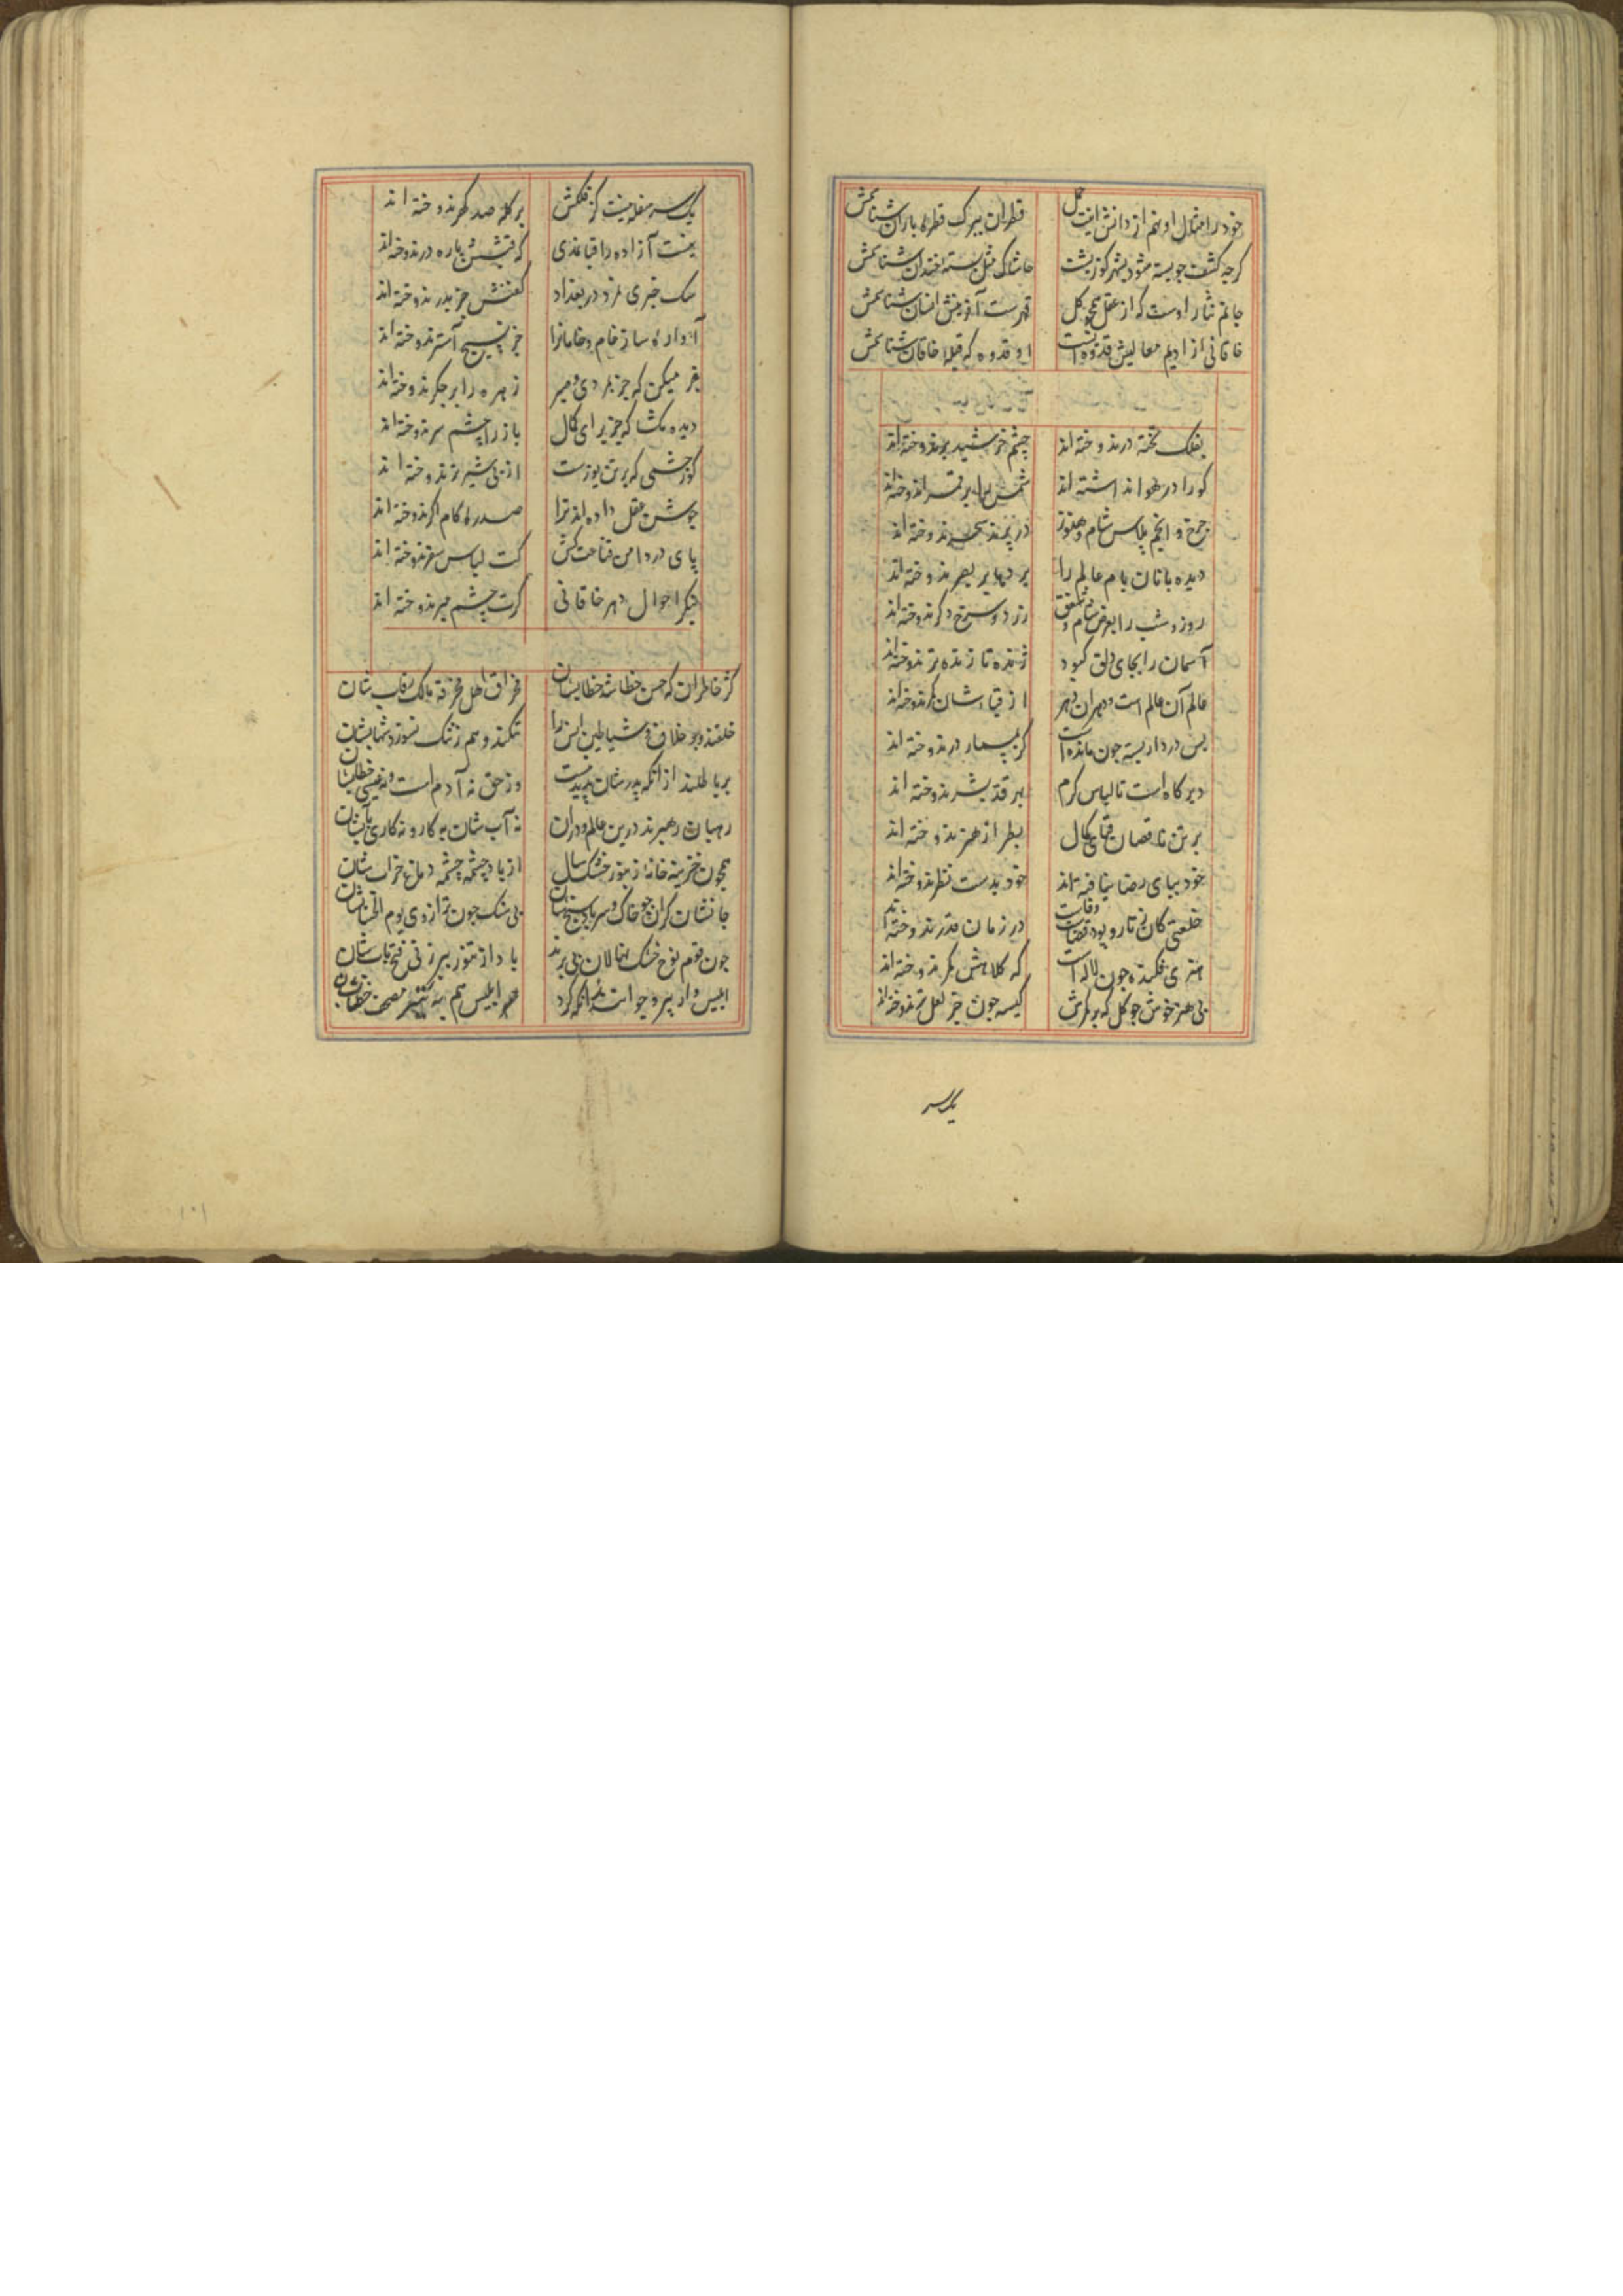 خود را مثال او نهم از دانش اینت جهل قطران بیرک قطره باران شناسمش
گرچه کشف چو پسته شود پشهر کوز پشت حاشا که مثل پسته خندان شناسمش
جانم نثار اوست که از عقل همچو کل فهرست آفرینش انسان شناسمش
خاقانی از ادیم معالیش قدوه ایست او قدوه که قبله خاقان شناسمش
بفلک تخته در ندوخته اند چشم خورشید بر ندوخته اند
کور را در هوا نداشته اند شمس را بر قمر ندوخته اند
چرخ و انجم پلاس شام هنوز در پرند سحر ندوخته اند
دیده بانان بام عالم را پردها بر بصر ندوخته اند
روز و شب را بعرض شام و شفق زرد و سرخ دگر ندوخته اند
آسمان را بجای دلق کبود ژنده تا زنده تر ندوخته اند
عالم آن عالم است و دهر آن دهر از قباشان مگر ندوخته اند
پس در داد بسته چون مانده است گر بمسمار در ندوخته اند
دیر گاه است تا لباس کرم بهر قد بشر ندوخته اند
بر تن ناقصان قبای کمال بطراز هنر ندوخته اند
خود بپای رضا نیافته اند خود بدست نظر ندوخته اند
خلعتی کان ز تار و پود وفاست در زمان قدر ندوخته اند
هنری فکنده چون لاله است که کلاهش مگر ندوخته اند
بی هنر خوش چو گل که بر کمرش کیسه چون جز لعل تر ندوخته اند
یک سر
یک سر سفله نیست کز فلکش بر کله صد گهر ندوخته اند
نیست آزاده را قبا نمدی که قبیش پاره در ندوخته اند
سگ خبری مرد در بغداد کفنش جز بدر ندوخته اند
آدوار ساز خام و خامانرا جز نسیج آستر ندوخته اند
بخر میکن که جز بدی و میر زهره را بر جگر ندوخته اند
دیده مگشا که جز برای کمال باز را چشم سر ندوخته اند
گوز چشمی که بر تن یوزست از پی شیر نر ندوخته اند
جوشن عقل داده اند ترا صدره کام اگر ندوخته اند
پای در دامن قناعت کش کت لباس سفر ندوخته اند
بنگر احوال دهر خاقانی گرت چشم عبر ندوخته اند
کژ خاطران که حسن خطا شد خطابشان مخراق اهل مخرقه مالک رقابشان
خلقند و بر خلاف شیاطین انس را تکند و هم ز ننگ نسوزد شهابشان
بر باطلند از انکه پدرشان پدید نیست وز حق نه آدم است و نه عیسی خطابشان
رهبان رهبرند درین عالم و دران نه آب شان به کار و نه کاری به آبشان
همچون خزینه خانه زنبور خشک سال از باد چشمه چشمه دماغ خراب شان
جانشان گران چو خاک و سر باد سنج شان بی سنگ چون ترازوی یوم الحسابشان
چون قوم نوح خشک نهالان بی برند باد از تنور پیرزنی فتح باب شان
ابلیس وار پیر و جوانند از انکه کرد هم ابلیس هم به کفر مصحف خطابشان